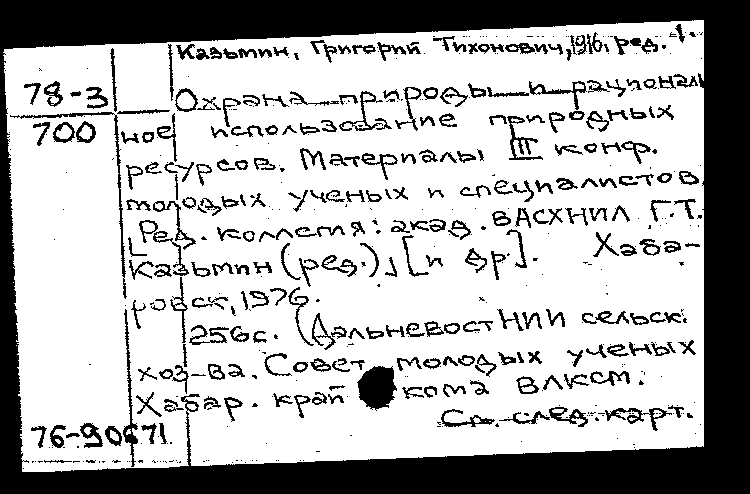 Казьмин, Григорий Тихонович, 1916, ред. 1.
78-3
Охрана природы и рациональ
700
ное использование природных
ресурсов. Материалы III конф.
молодых ученых и специалистов.
[Ред. коллегия: акад. ВАСХНИЛ Г.Т.
Казьмин (ред.), [и др.]. Хаба-
ровск, 1976.
256с. (Дальневост НИИ сельск.
хоз-ва. Совет молодых ученых
Хабар. край кома ВЛКСМ.
См. след. карт.
76-90671